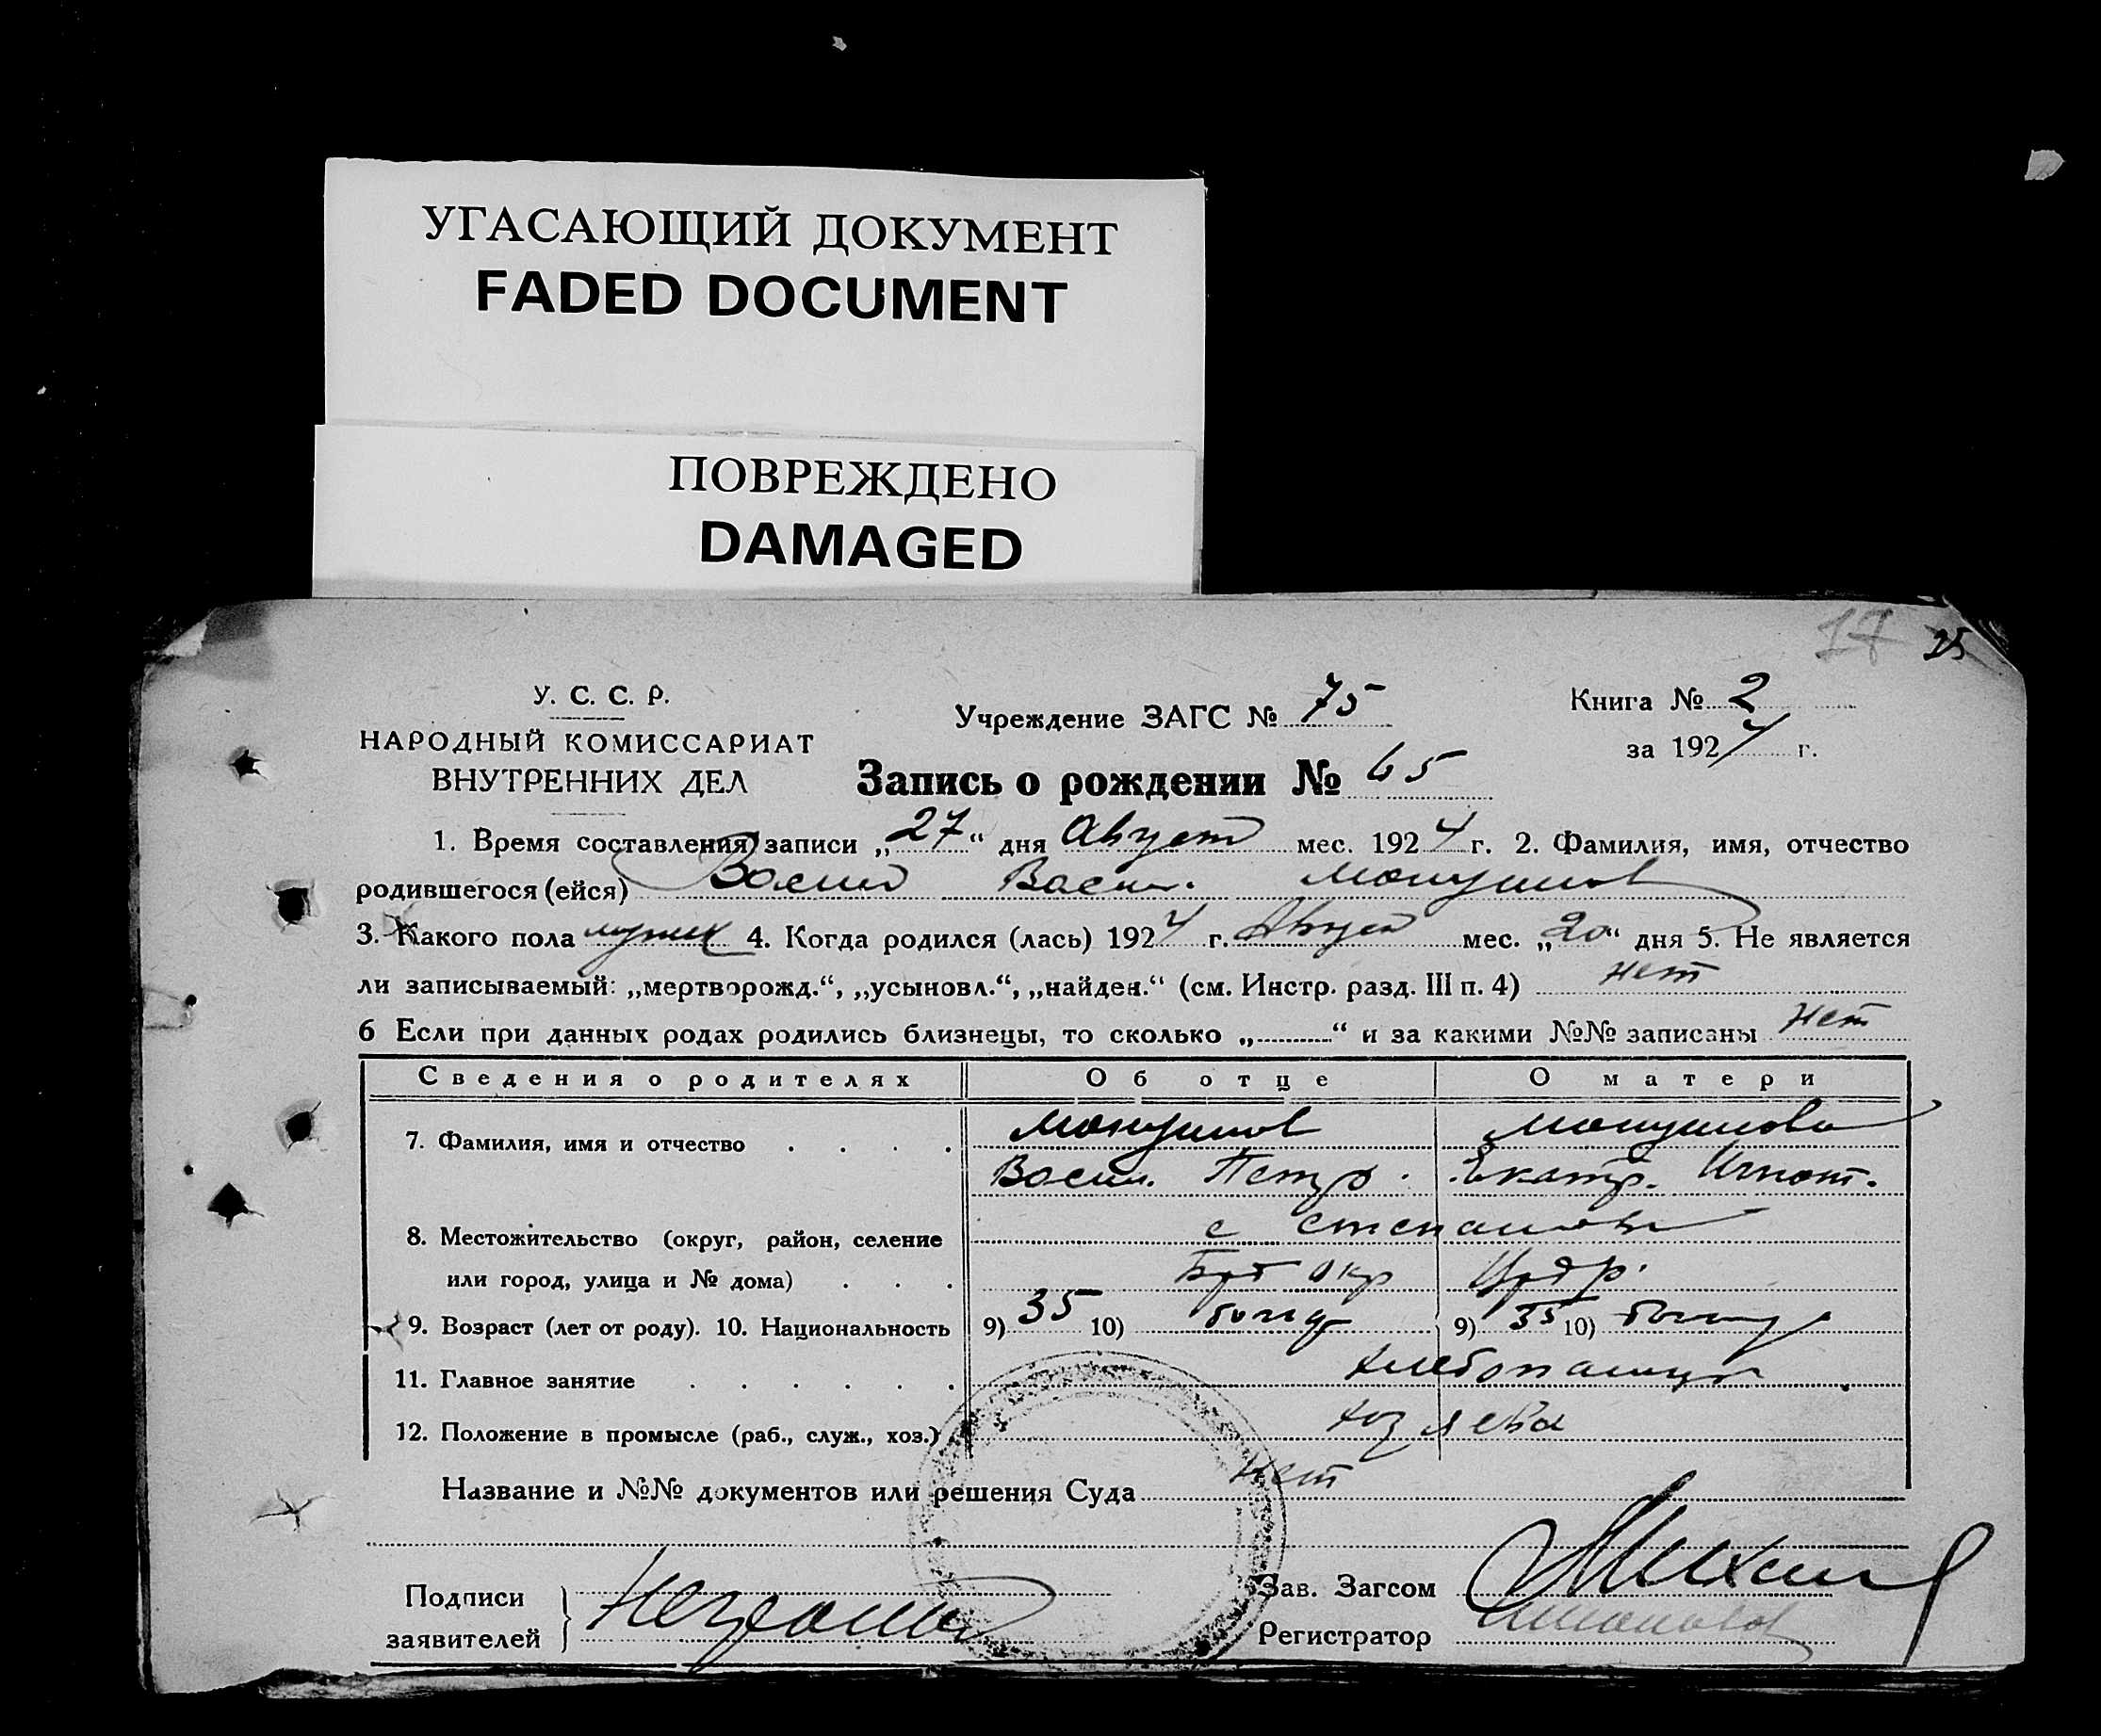 УГАСАЮЩИЙ ДОКУМЕНТ
FADED DOCUMENT
ПОВРЕЖДЕНО
DAMAGED
17 25
У. С. С. Р.
НАРОДНЫЙ КОМИССАРИАТ
ВНУТРЕННИХ ДЕЛ
Учреждение ЗАГС № 75
Книга № 2
за 1924 г.
Запись о рождении № 65
1. Время составления записи „27“ дня Август мес. 1924 г. 2. Фамилия, имя, отчество
родившегося (ейся) Васил.
3. Какого пола 4. Когда родился (лась) 1924 г. Август мес. „20“ дня 5. Не является
ли записываемый: „мертворожд.“, „усыновл.“, „найден.“ (см. Инстр. разд. III п. 4) нет
6 Если при данных родах родились близнецы, то сколько „“ и за какими №№ записаны нет
Сведения о родителях Об отце О матери
7. Фамилия, имя и отчество
Васил. Петр. Екатр. Игнат.
8. Местожительство (округ, район, селение с
или город, улица и № дома) окр
9. Возраст (лет от роду). 10. Национальность 9) 35 10) 9) 35 10)
11. Главное занятие
12. Положение в промысле (раб., служ., хоз.)
Название и №№ документов или решения Суда нет
Подписи
заявителей
Зав. Загсом
Регистратор